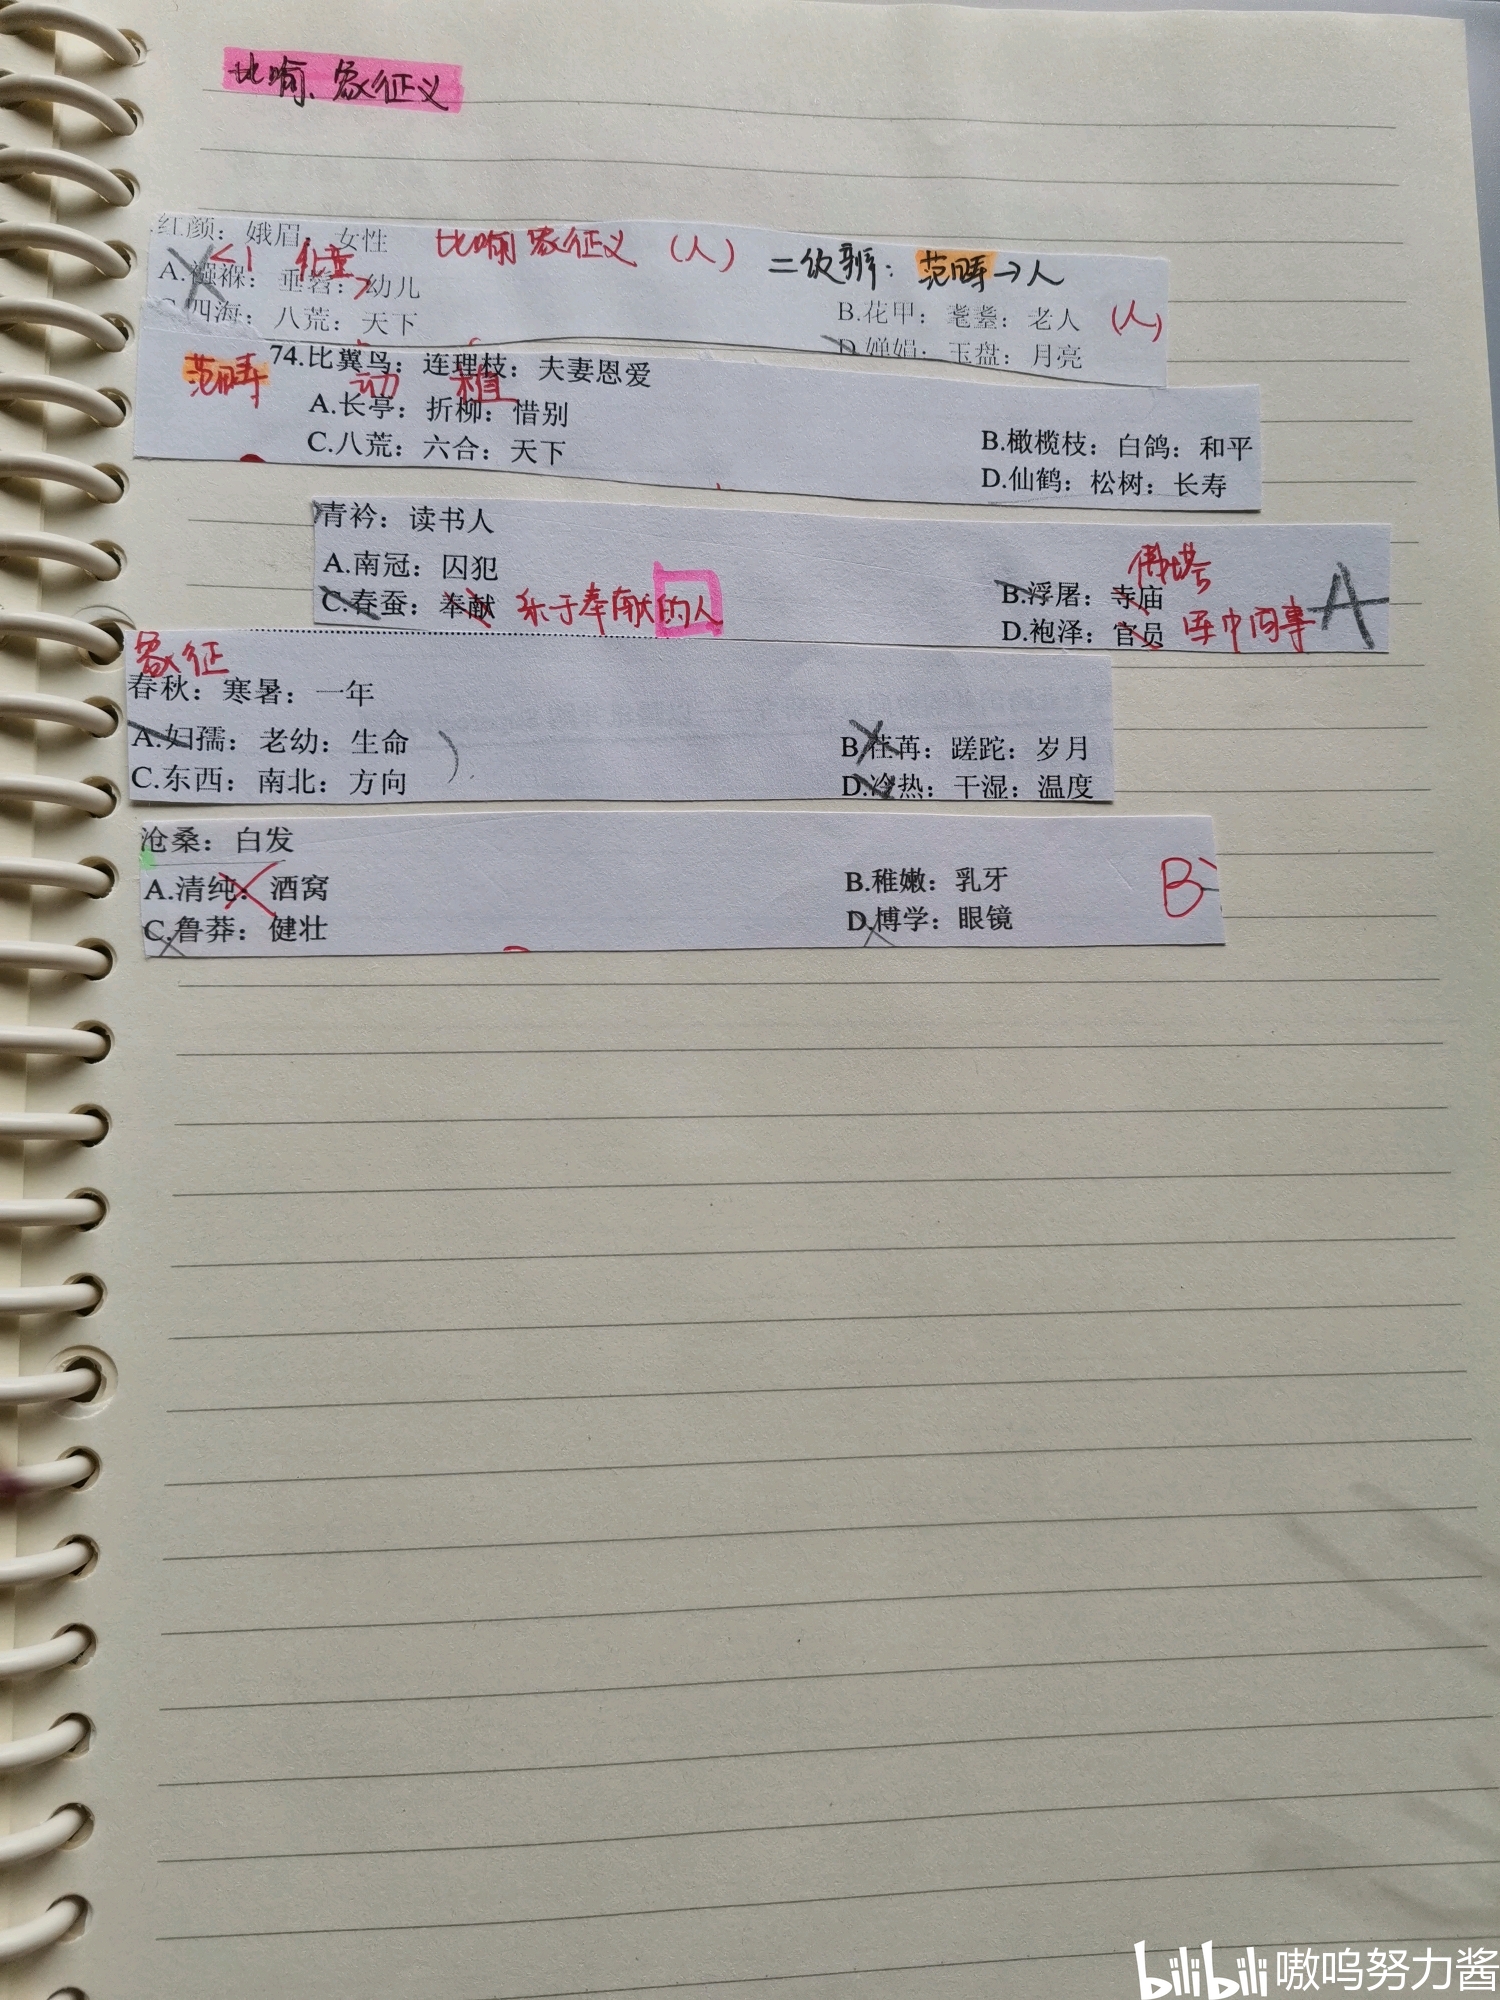 比喻、象征义
红颜：娥眉：女性 比喻象征义（人） 二级辨：范畴→人
<1 儿童
A.襁褓：垂髫：幼儿
B.花甲：耄耋：老人 （人）
C.四海：八荒：天下
D.婵娟：玉盘：月亮
范畴 74.比翼鸟：连理枝：夫妻恩爱
动 植
A.长亭：折柳：惜别
B.橄榄枝：白鸽：和平
C.八荒：六合：天下
D.仙鹤：松树：长寿
青衿：读书人
A.南冠：囚犯
佛塔
B.浮屠：寺庙
C.春蚕：奉献 乐于奉献的人
D.袍泽：官员 军中同事 A
象征
春秋：寒暑：一年
A.妇孺：老幼：生命
B.荏苒：蹉跎：岁月
C.东西：南北：方向
D.冷热：干湿：温度
沧桑：白发
A.清纯：酒窝
B.稚嫩：乳牙 B
C.鲁莽：健壮
D.博学：眼镜
bilibili 嗷呜努力酱